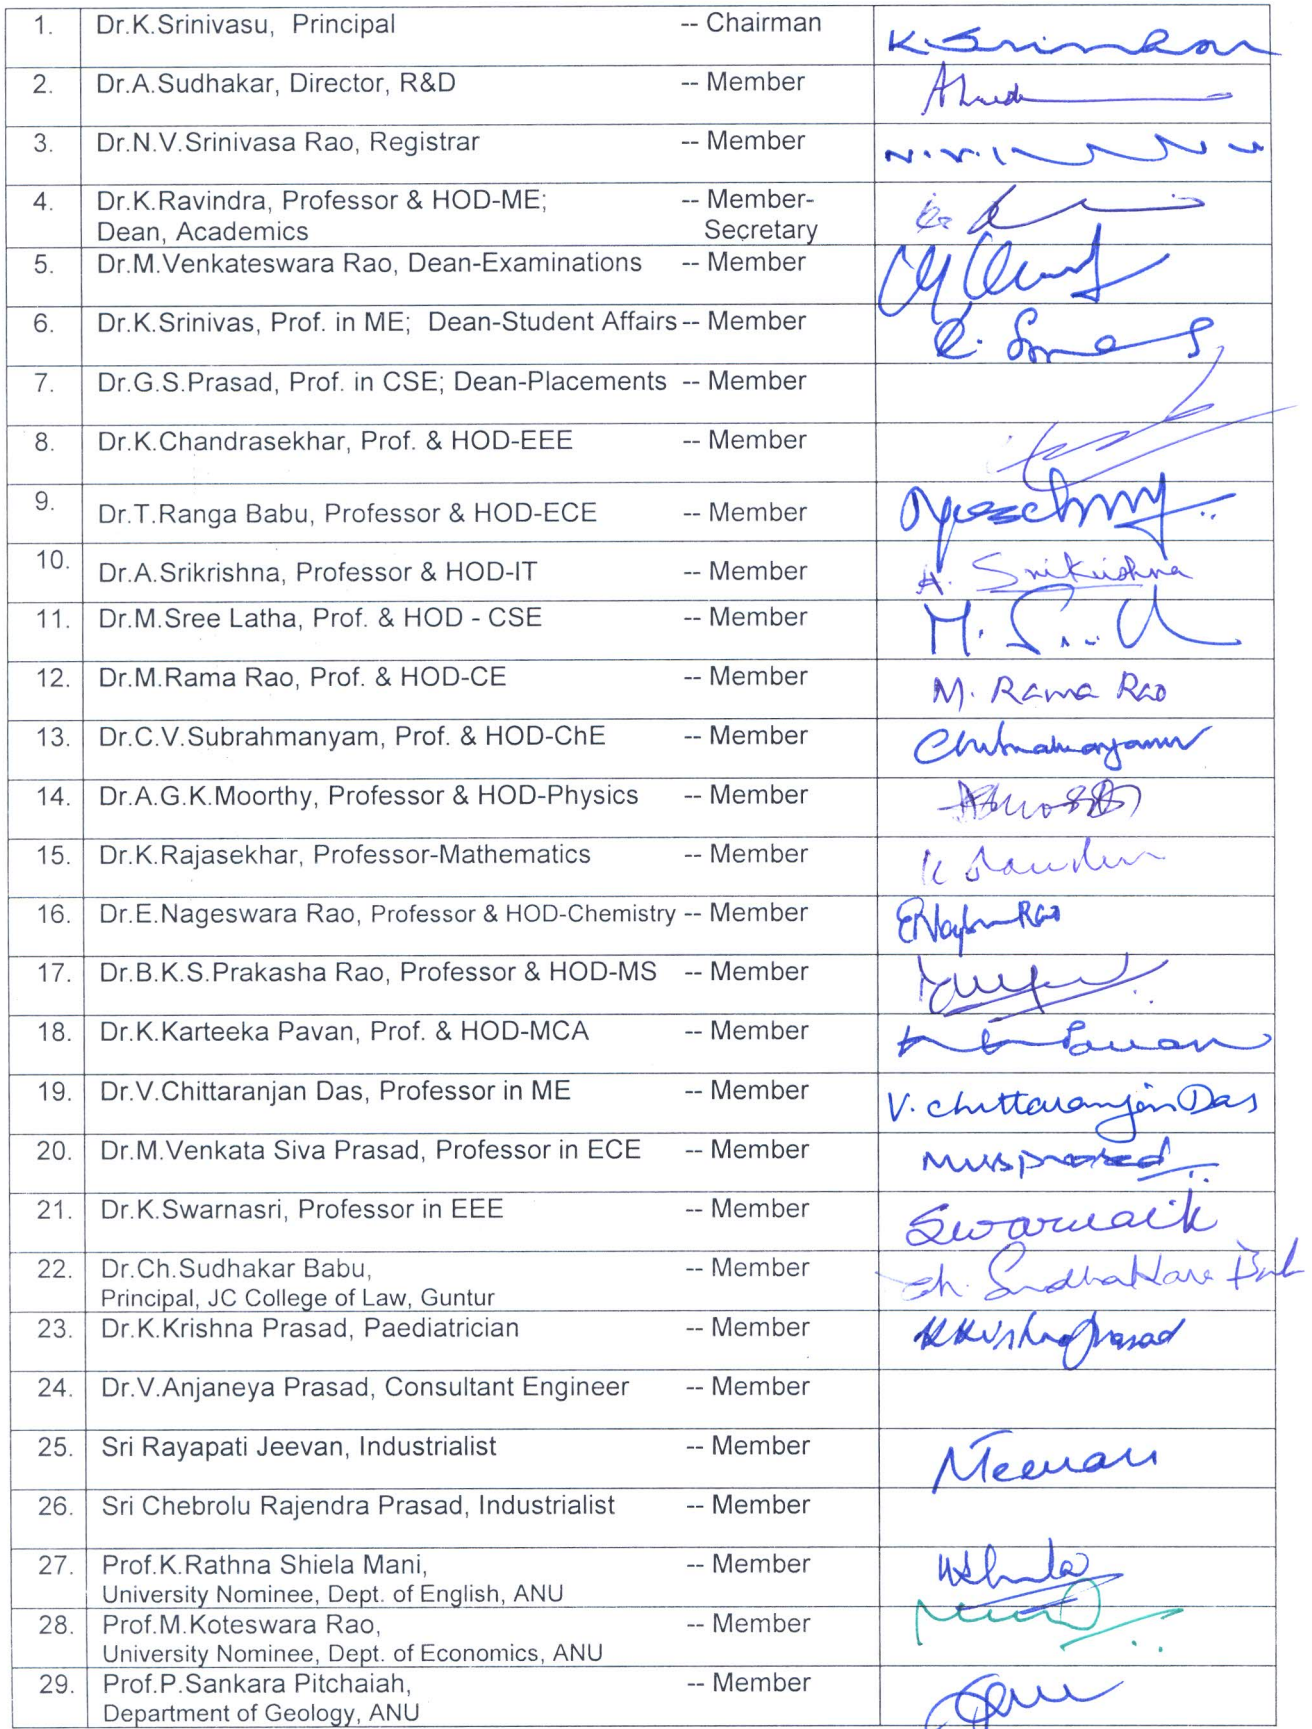 1. Dr.K.Srinivasu, Principal -- Chairman K. Srinivasu
2. Dr.A.Sudhakar, Director, R&D -- Member
3. Dr.N.V.Srinivasa Rao, Registrar -- Member N.V.
4. Dr.K.Ravindra, Professor & HOD-ME; -- Member-
Dean, Academics Secretary
5. Dr.M.Venkateswara Rao, Dean-Examinations -- Member
6. Dr.K.Srinivas, Prof. in ME; Dean-Student Affairs -- Member
7. Dr.G.S.Prasad, Prof. in CSE; Dean-Placements -- Member
8. Dr.K.Chandrasekhar, Prof. & HOD-EEE -- Member
9. Dr.T.Ranga Babu, Professor & HOD-ECE -- Member
10. Dr.A.Srikrishna, Professor & HOD-IT -- Member A. Srikrishna
11. Dr.M.Sree Latha, Prof. & HOD - CSE -- Member
12. Dr.M.Rama Rao, Prof. & HOD-CE -- Member M. Rama Rao
13. Dr.C.V.Subrahmanyam, Prof. & HOD-ChE -- Member
14. Dr.A.G.K.Moorthy, Professor & HOD-Physics -- Member
15. Dr.K.Rajasekhar, Professor-Mathematics -- Member
16. Dr.E.Nageswara Rao, Professor & HOD-Chemistry -- Member
17. Dr.B.K.S.Prakasha Rao, Professor & HOD-MS -- Member
18. Dr.K.Karteeka Pavan, Prof. & HOD-MCA -- Member
19. Dr.V.Chittaranjan Das, Professor in ME -- Member V. Chittaranjan Das
20. Dr.M.Venkata Siva Prasad, Professor in ECE -- Member MVSprasad
21. Dr.K.Swarnasri, Professor in EEE -- Member
22. Dr.Ch.Sudhakar Babu, -- Member
Principal, JC College of Law, Guntur
23. Dr.K.Krishna Prasad, Paediatrician -- Member KKrishnaprasad
24. Dr.V.Anjaneya Prasad, Consultant Engineer -- Member
25. Sri Rayapati Jeevan, Industrialist -- Member
26. Sri Chebrolu Rajendra Prasad, Industrialist -- Member
27. Prof.K.Rathna Shiela Mani, -- Member
University Nominee, Dept. of English, ANU
28. Prof.M.Koteswara Rao, -- Member
University Nominee, Dept. of Economics, ANU
29. Prof.P.Sankara Pitchaiah, -- Member
Department of Geology, ANU